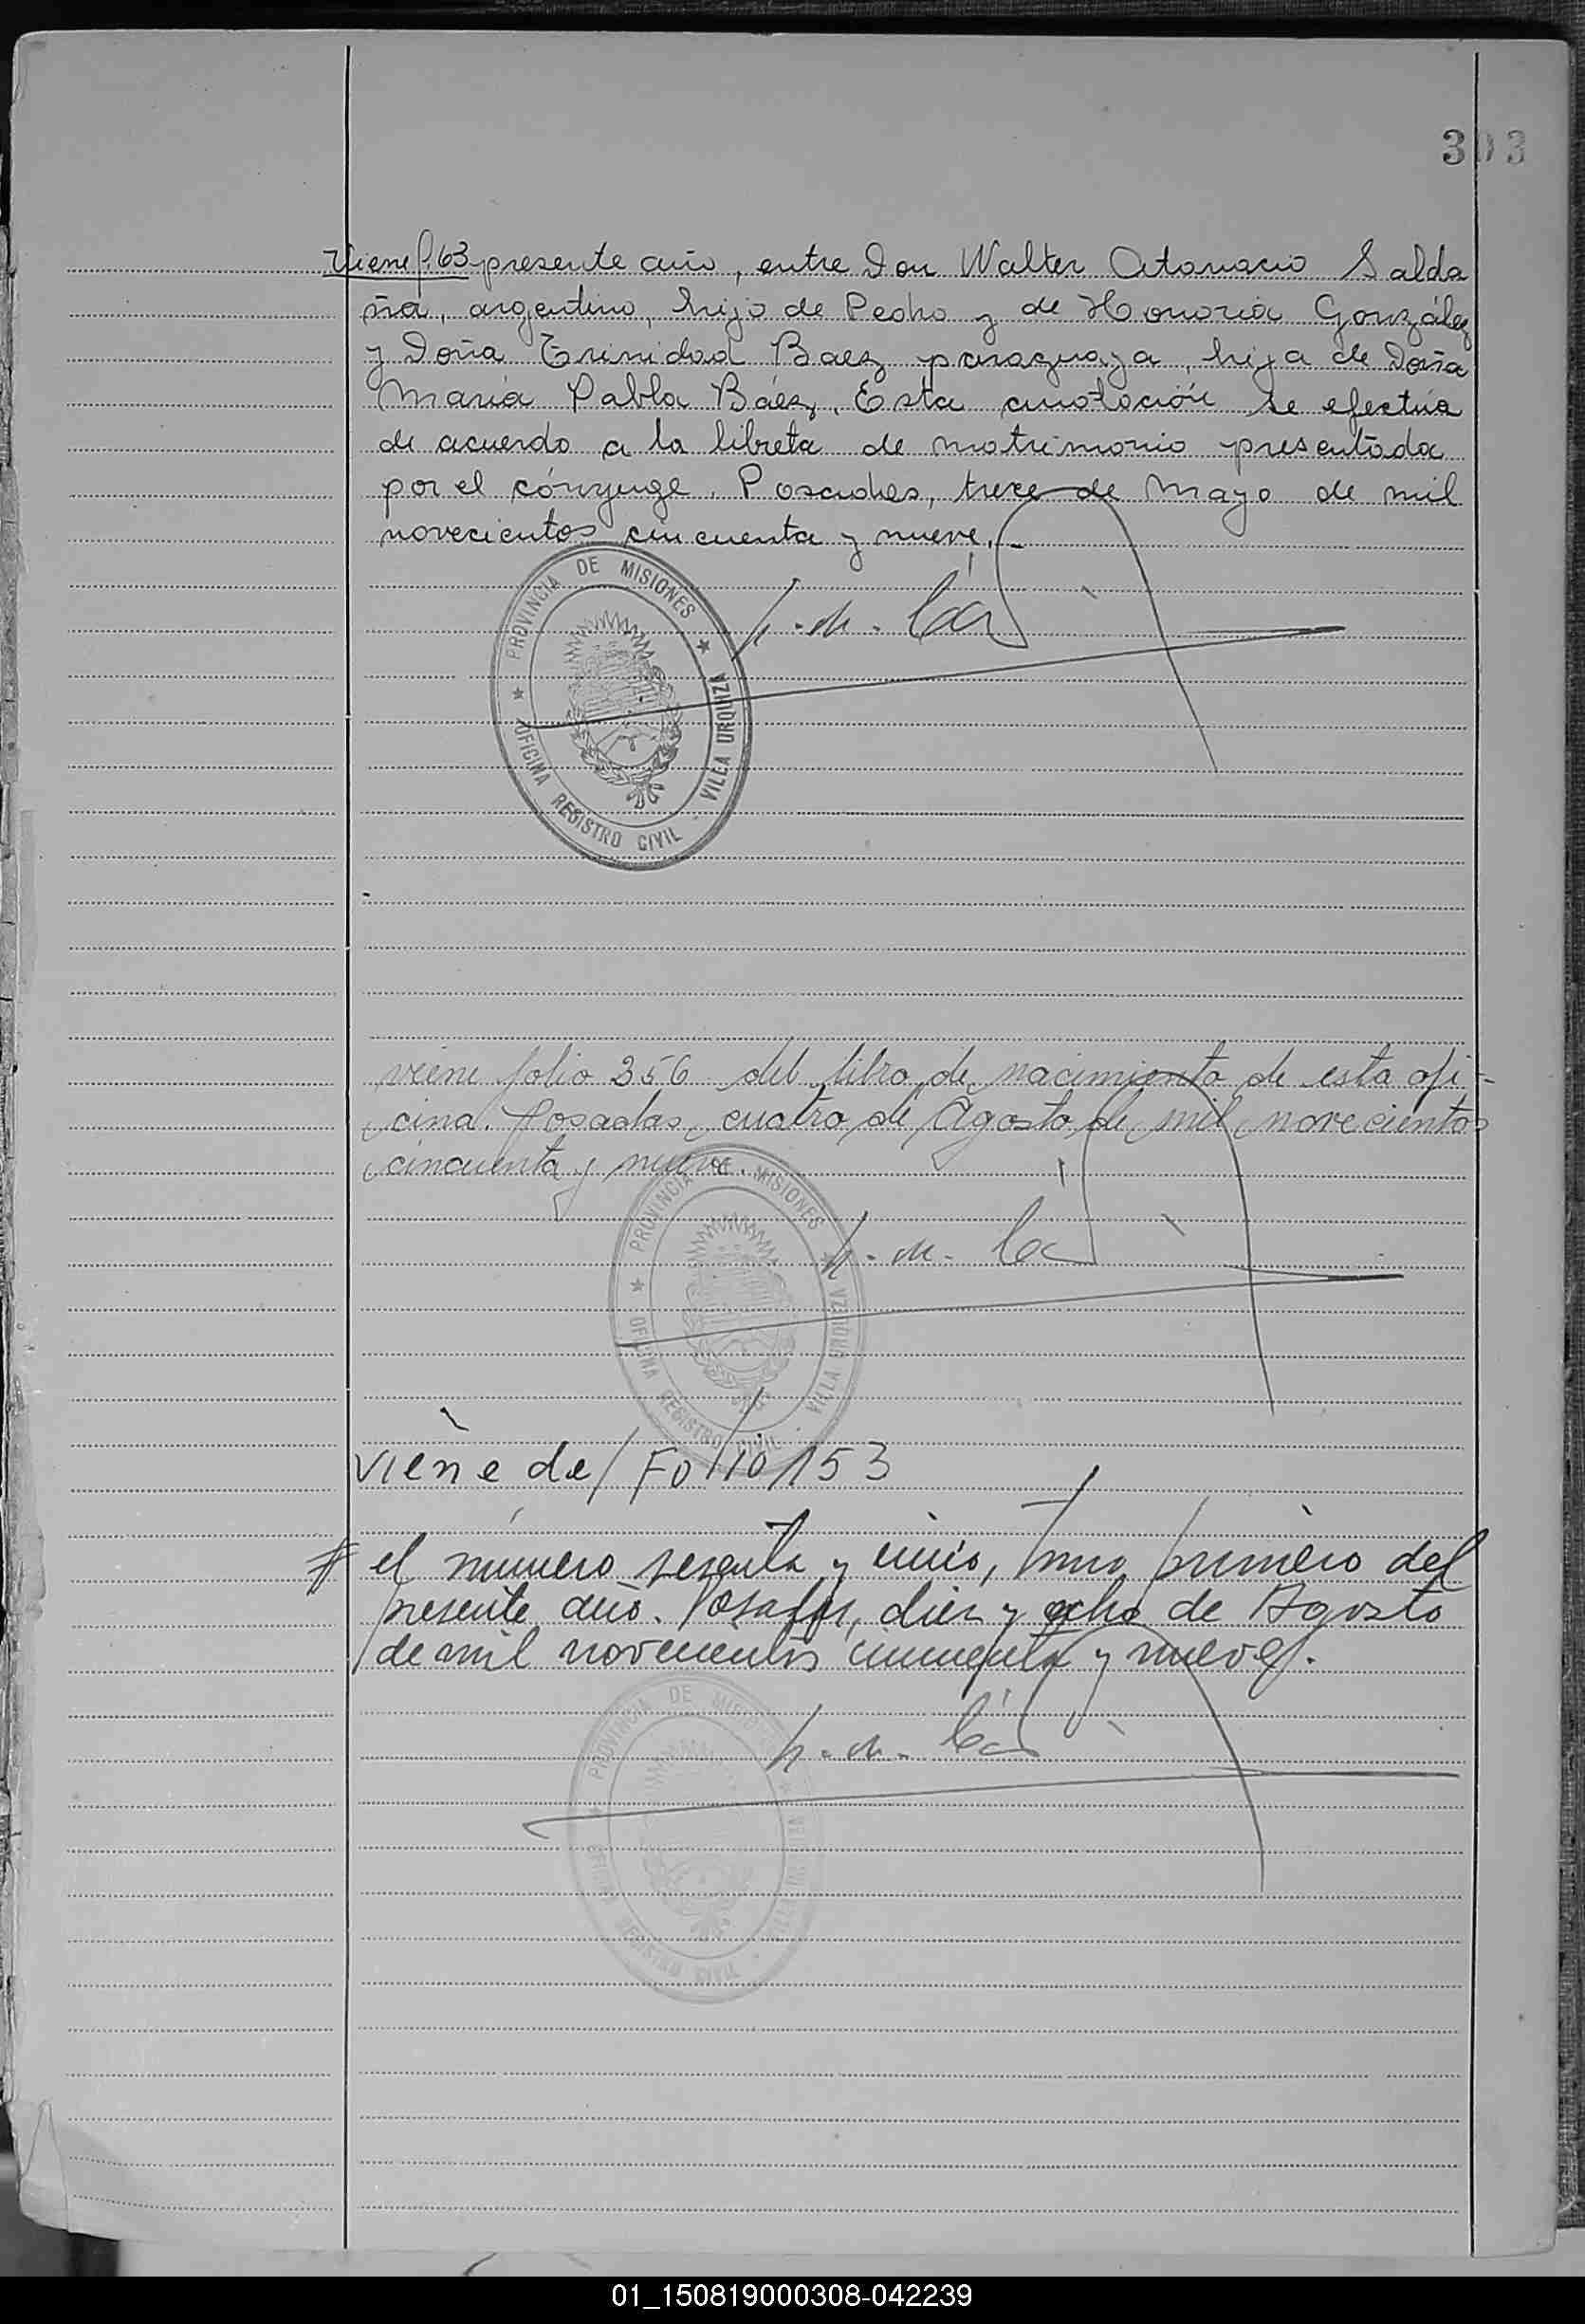 303
Viene f. 63 presente año, entre Don Walter Atanacio Salda
ña, argentino, hijo de Pedro y de Honoria González
y Doña Trinidad Baez paraguaya, hija de Doña
María Pabla Báez. Esta anotación se efectúa
de acuerdo a la libreta de matrimonio presentada
por el cónyuge. Posadas, trece de Mayo de mil
novecientos cincuenta y nueve.-
PROVINCIA DE MISIONES ★ VILLA URQUIZA
★ OFICINA REGISTRO CIVIL
viene folio 356 del libro de nacimiento de esta ofi-
cina. Posadas, cuatro de Agosto de mil novecientos
cincuenta y nueve.
PROVINCIA DE MISIONES ★ VILLA URQUIZA
★ OFICINA REGISTRO CIVIL
viene del Folio 153
# el número sesenta y cinco, tomo primero del
presente año. Posadas, diez y ocho de Agosto
de mil novecientos cincuenta y nueve.
PROVINCIA DE MISIONES ★ VILLA URQUIZA
★ OFICINA REGISTRO CIVIL
01_150819000308-042239